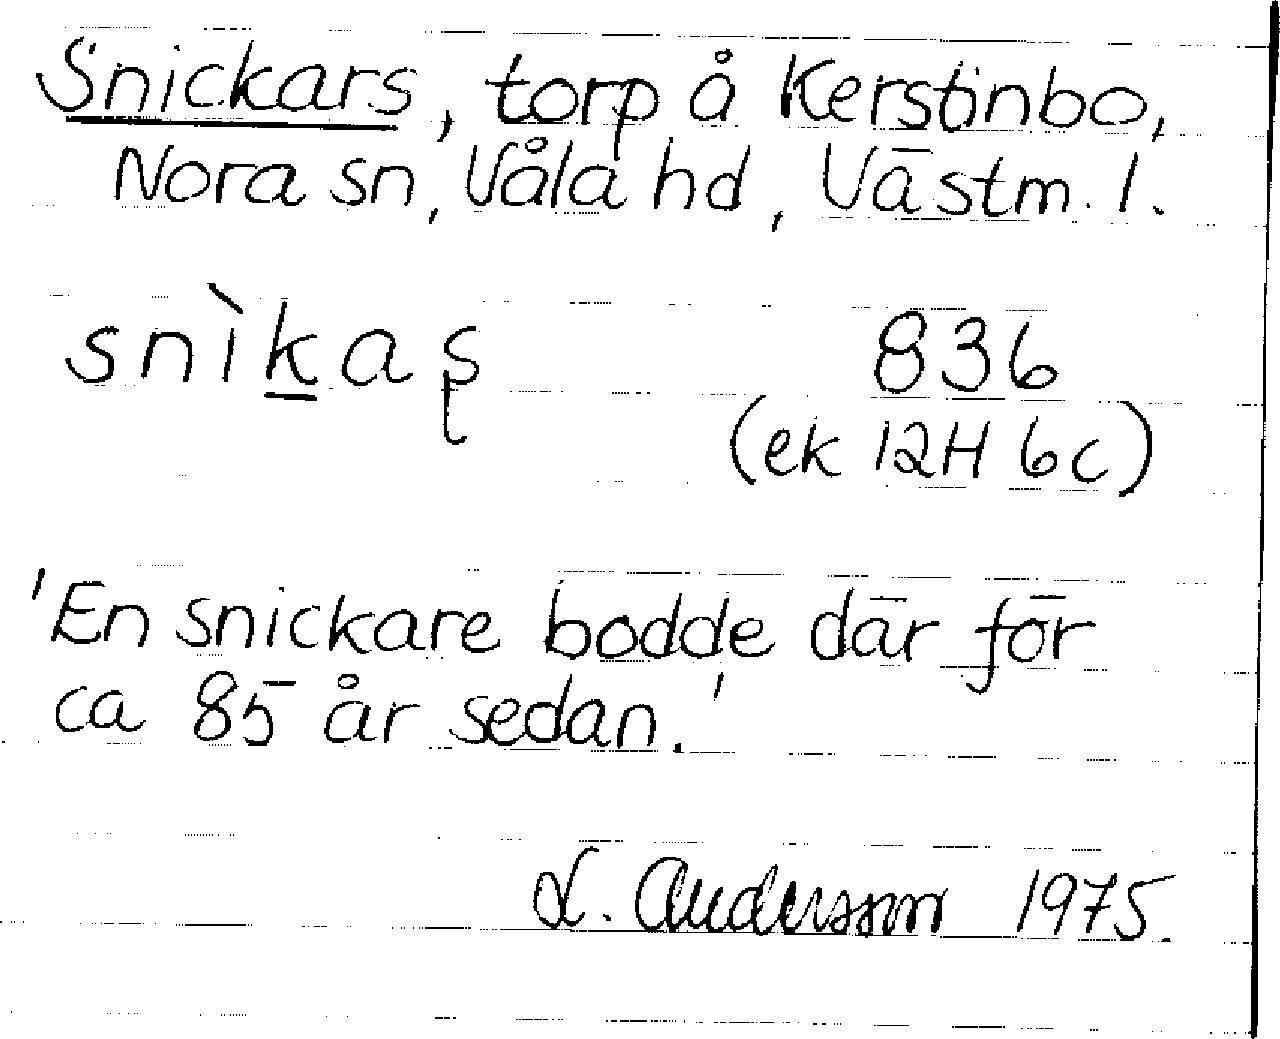 Snickars, torp å Kerstinbo,
Nora sn, Våla hd, Västm. l.
snìk̲aʂ 836
(ek 12H 6c)
'En snickare bodde där för
ca 85 år sedan.'
L. Andersson 1975.